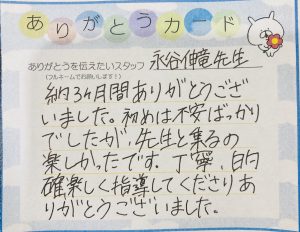 ありがとうカード
ありがとうを伝えたいスタッフ 永谷伸竜先生
(フルネームでお願いします!)
約3ヶ月間ありがとうござ
いました。初めは不安ばっかり
でしたが、先生と乗るの
楽しかったです。丁寧、的
確楽しく指導してくださりあ
りがとうございました。